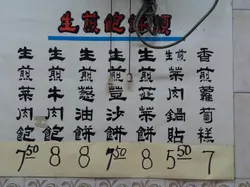 生煎飽
香煎蘿蔔糕 7
生煎菜肉鍋貼 5.50
生煎韮菜餅 8
生煎荳沙餅 7.50
生煎葱油餅 8
生煎牛肉飽 8
生煎菜肉飽 7.50